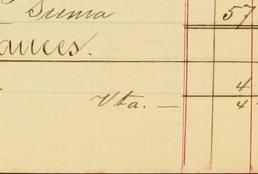 Suma 57
ances.
4
Vta. — 4